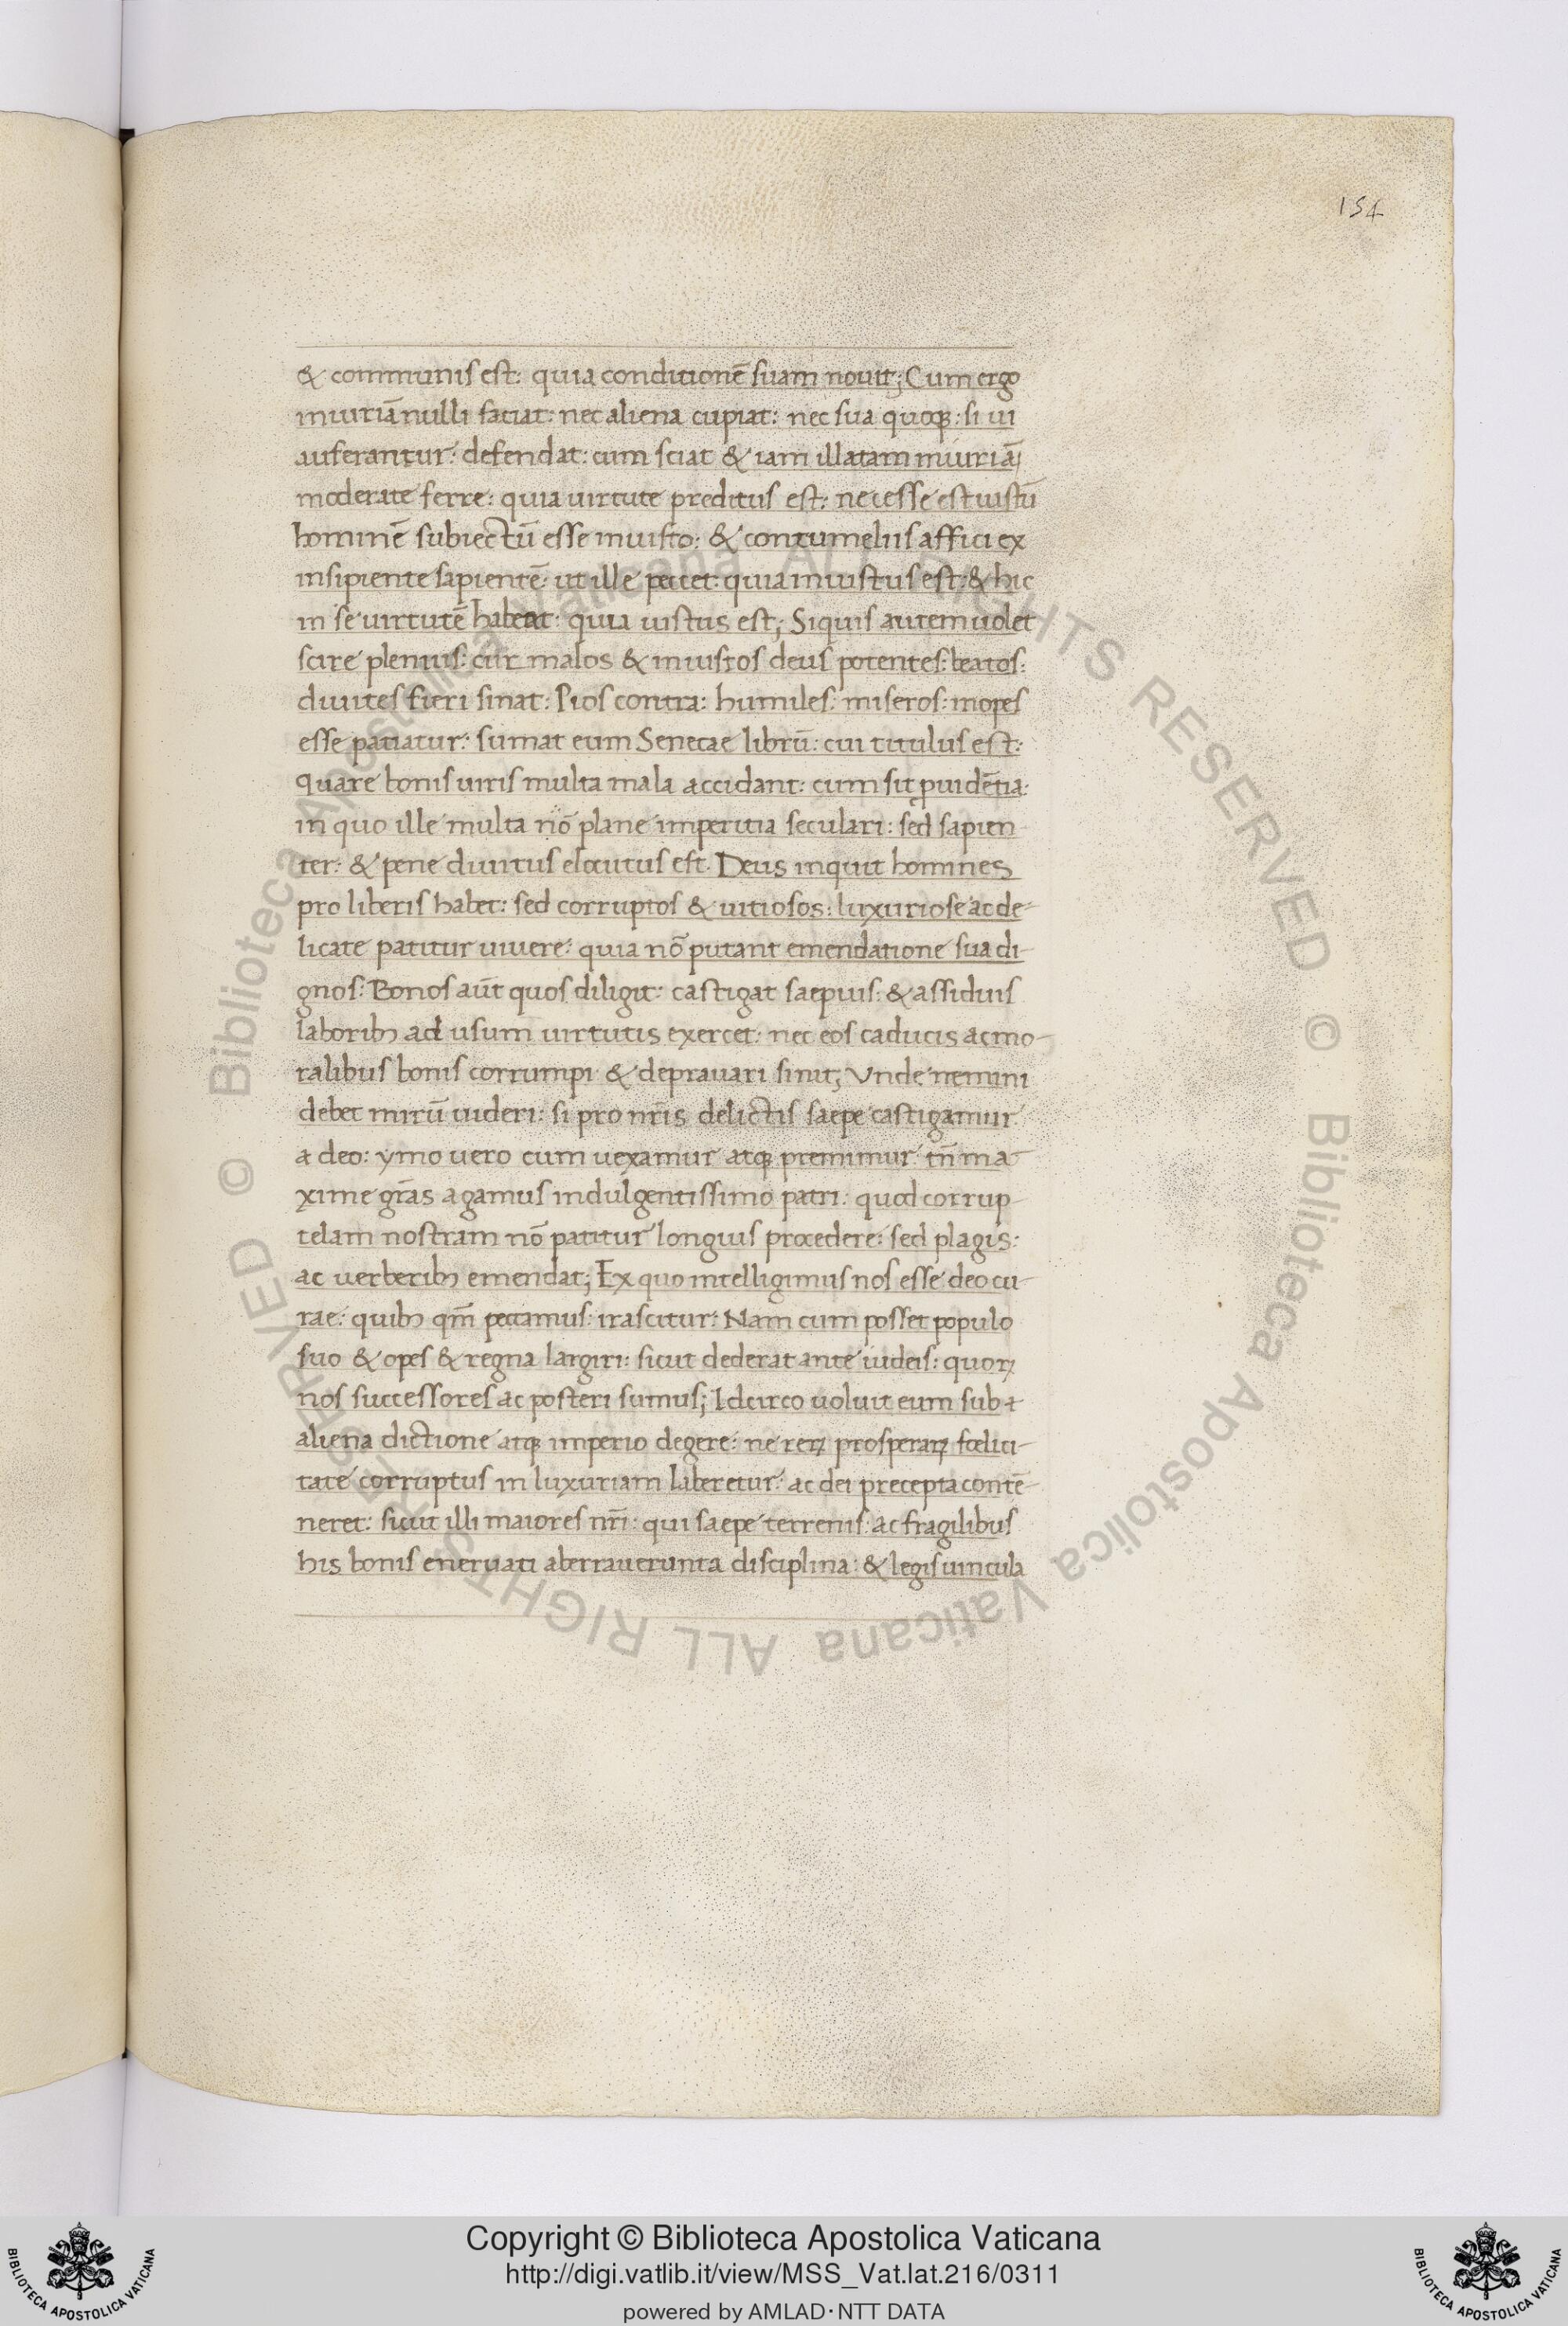 154
& communis est: quia conditionē suam nouit; Cum ergo
iniuriā nulli faciat: nec aliena cupiat: nec sua quoqꝫ: si ui
auferantur: defendat: cum sciat & iam illatam iniuriā
moderate ferre: quia uirtute preditus est: necesse est iustū
hominē subiectū esse iniusto: & contumeliis affici ex
insipiente sapientē: ut ille peccet: quia iniustus est: & hic
in se uirtutē habeat: quia iustus est; Siquis autem uolet
scire plenius: cur malos & iniustos deus potentes: beatos:
diuites fieri sinat: Pios contra: humiles: miseros: inopes
esse patiatur: sumat eum Senecae librū: cui titulus est:
quare bonis uiris multa mala accidant: cum sit ꝓuidētia:
in quo ille multa nō plane imperitia seculari: sed sapien
ter: & pene diuitus elocutus est. Deus inquit homines
pro liberis habet: sed corruptos & uitiosos: luxuriose ac de-
licate patitur uiuere: quia nō putant emendatione sua di-
gnos: Bonos aūt quos diligit: castigat saepius: & assiduis
laboribꝫ ad usum uirtutis exercet: nec eos caducis ac mo-
ralibus bonis corrumpi & deprauari sinit; Vnde nemini
debet mirū uideri: si pro nr̄is delictis saepe castigamur
a deo: ymo uero cum uexamur atqꝫ premimur: tn̄ ma
xime gr̄as agamus indulgentissimo patri: quod corrup-
telam nostram nō patitur longius procedere: sed plagis:
ac uerberibꝫ emendat; Ex quo intelligimus nos esse deo cu-
rae: quibꝫ qm̄ peccamus: irascitur: Nam cum posset populo
suo & opes & regna largiri: sicut dederat ante iudeis: quoꝝ
nos successores ac posteri sumus; Idcirco uoluit eum sub
aliena dictione atqꝫ imperio degere: ne reꝝ prosperaꝝ fœlici-
tate corruptus in luxuriam laberetur: ac dei precepta contē-
neret: sicut illi maiores nr̄i: qui saepe terrenis: ac fragilibus
his bonis eneruati aberrauerunt a disciplina: & legis uincula
© Biblioteca Apostolica Vaticana ALL RIGHTS RESERVED
© Biblioteca Apostolica Vaticana ALL RIGHTS RESERVED
Copyright © Biblioteca Apostolica Vaticana
http://digi.vatlib.it/view/MSS_Vat.lat.216/0311
powered by AMLAD·NTT DATA
BIBLIOTECA APOSTOLICA VATICANA
BIBLIOTECA APOSTOLICA VATICANA